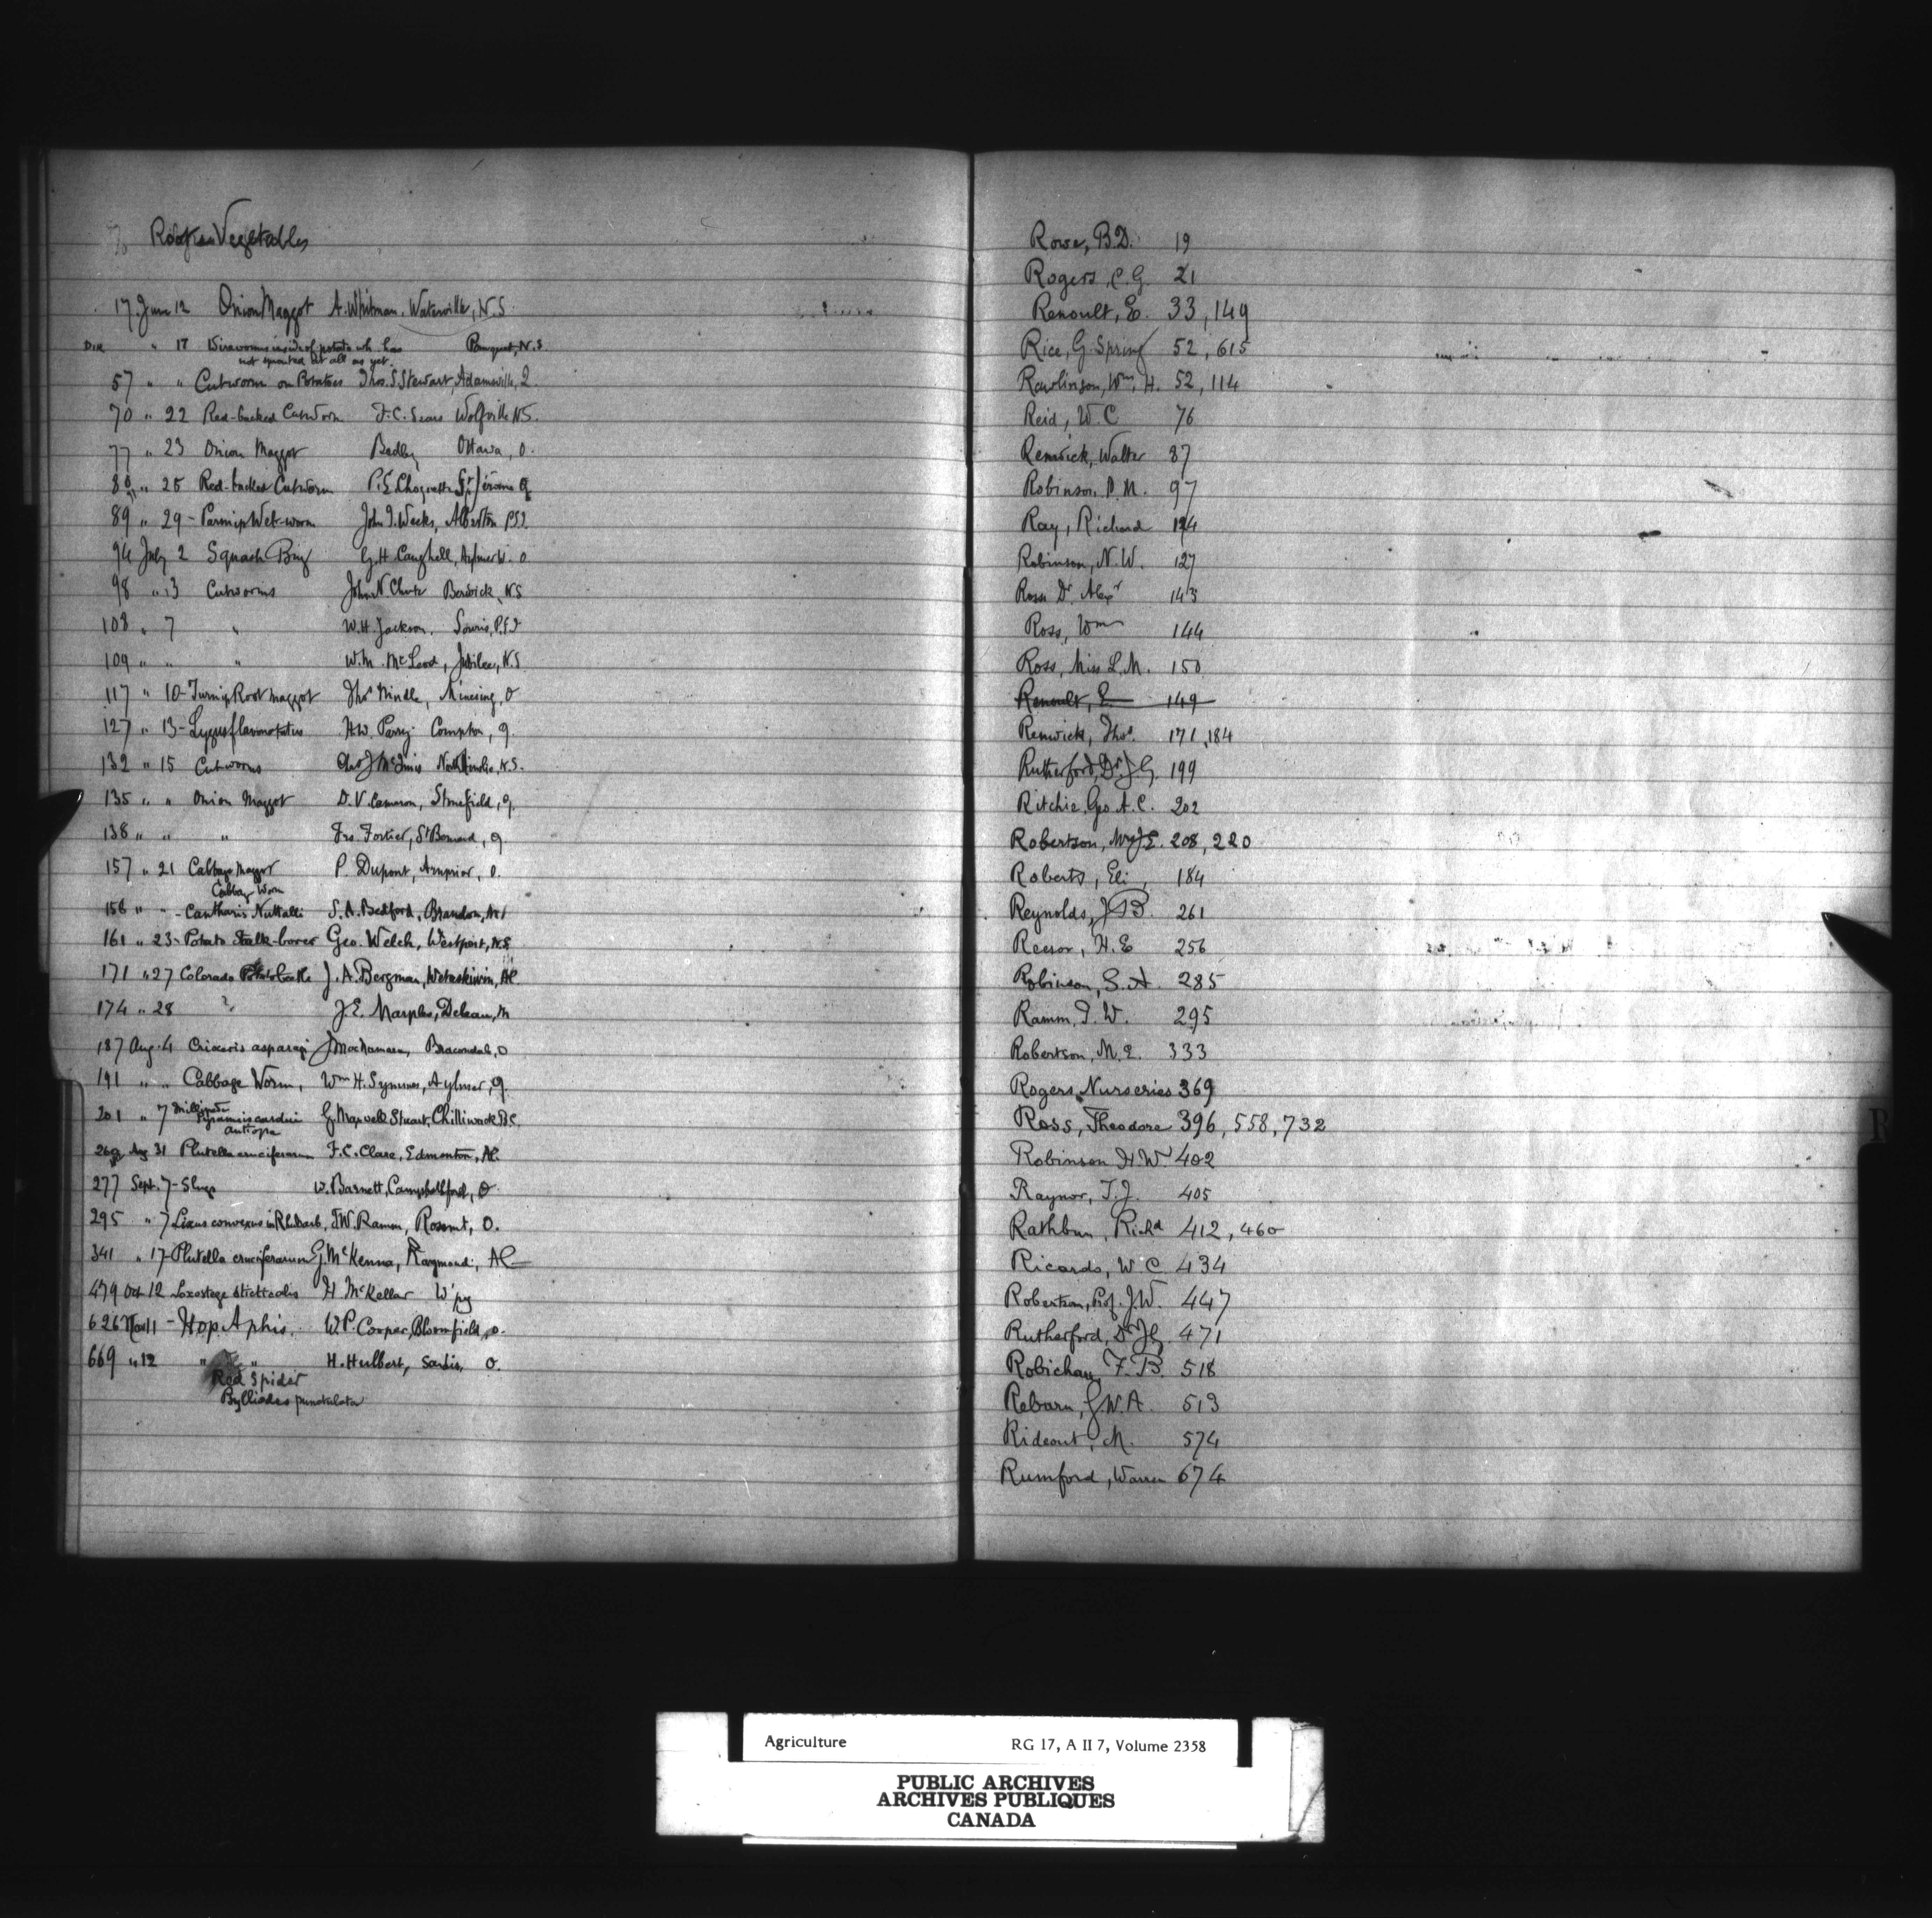 Vegetables
17 June 12 Onion Maggot A. Whitman, Waterville, N.S.
" 17 Wireworms inside of potato wh. has N.S.
not sprouted at all as yet.
57 " " Cutworm on Potatoes Thos. S. Stewart, Adamsville, Q.
70 " 22 Red-backed Cutworm F.C. Sears Wolfville N.S.
77 " 23 Onion Maggot Ottawa, O.
80 " 25 Red-backed Cutworm St Jérome Q
89 " 29 - Parsnip Web-worm John J. Weeks, Alberton P.E.I.
94 July 2 Squash Bug G.H. Caughell, Aylmer W. O
98 " 3 Cutworms John N. Chute Berwick, N.S
108 " 7 " W.H. Jackson, Souris, P.E.I
109 " " " W.M. McLeod, Jubilee, N.S
117 " 10 - Turnip Root maggot Thos Hindle, Minesing, O
127 " 13 - Lygus flavonotatus H.W. Parry Compton, Q.
132 " 15 Cutworms Chas J McInnis N.S.
135 " " Onion Maggot D. V. Cameron, Stonefield, Q.
138 " " " Frs. Fortier, St Bernard, Q.
157 " 21 Cabbage Maggot P. Dupont, Arnprior, O.
Cabbage Worm
158 " " - Cantharis Nuttalli S.A. Bedford, Brandon, M
161 " 23 - Potato Stalk-borer Geo. Welch, Westport, N.S.
171 " 27 Colorado Potato beetle J.A. Bergman, Wetaskiwin, Al.
174 " 28 " J.E. Marples, Deleau, M
187 Aug. 4 Crioceris asparagi J Macnamara, Bracondale, O
191 " " Cabbage Worm, Wm H. Symmes, Aylmer, Q.
201 " 7 Millipede
Pyrameis cardui G. Maxwell Stuart, Chilliwack B.C.
antiopa
269 Aug 31 Plutella cruciferarum F.C. Clare, Edmonton, Al.
277 Sept. 7 - Slugs W. Barnett, Campbellford, O
295 " 7 Lixus concavus in Rhubarb, T.W. Ramm, Rosemt, O.
341 " 17 - Plutella cruciferarum G. McKenna, Raymond, Al
479 Oct 12 Loxostege sticticalis H. McKellar W'pg
626 Nov 11 - Hop Aphis. W.P. Cooper, Bloomfield, O.
669 " 12 " " H. Hulbert, Sardis, O.
Red Spider
Psylliodes punctulata
Rowe, B.D. 19
Rogers, C.G. 21
Renoult, E. 33, 149
Rice, G. Spring 52, 615
Rawlinson, Wm. H. 52, 114
Reid, W.C 76
Renwick, Walter 87
Robinson, P.M. 97
Ray, Richard 124
Robinson, N.W. 127
Ross Dr. Alexr 143
Ross, Wm 144
Ross, Miss L.M. 150
Renoult, E 149
Renwick, Thos. 171, 184
Rutherford, Dr. J G. 199
Ritchie, Geo. A. C. 202
Robertson, Mrs J.E. 208, 220
Roberts, Eli, 184
Reynolds, J B. 261
Reesor, H. E 256
Robinson, S. A. 285
Ramm, T. W. 295
Robertson, M. E. 333
Rogers Nurseries 369
Ross, Theodore 396, 558, 732
Robinson H.W. 402
Raynor, T.J. 405
Rathbun, Richd 412, 460
Ricardo, W C 434
Robertson, Prof. J.W. 447
Rutherford, Dr J G. 471
Robichau, F. B. 518
Reburn, G.W.A. 513
Rideout, M. 574
Rumford, Warren 674
R
Agriculture RG 17, A II 7, Volume 2358
PUBLIC ARCHIVES
ARCHIVES PUBLIQUES
CANADA